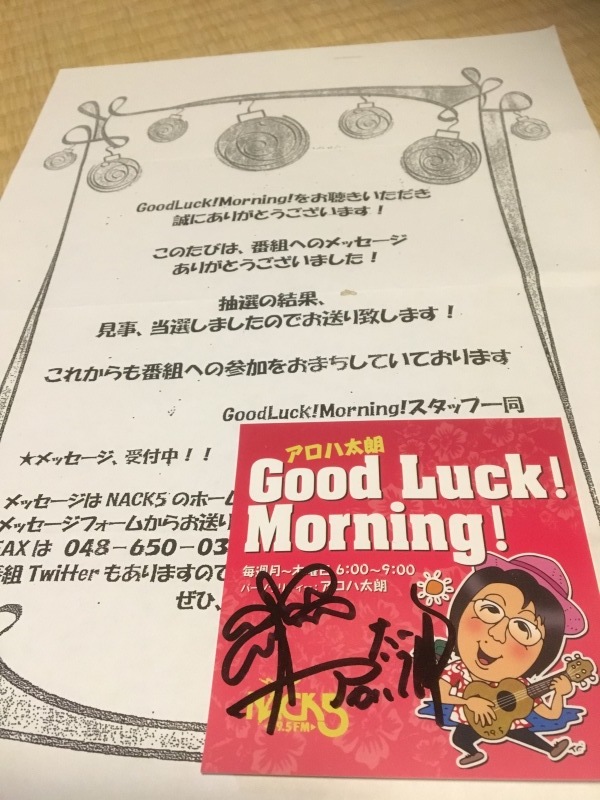 GoodLuck!Morning!をお聴きいただき
誠にありがとうございます!
このたびは、番組へのメッセージ
ありがとうございました!
抽選の結果、
見事、当選しましたのでお送り致します!
これからも番組への参加をおまちしていております
GoodLuck!Morning!スタッフ一同
★メッセージ、受付中!!
メッセージはNACK5のホーム
メッセージフォームからお送り
FAXは 048-650-03
番組Twitterもありますので
ぜひ、
アロハ太朗
Good Luck!
Morning!
毎週月~木曜日 6:00~9:00
パーソナリティー:アロハ太朗
NACK5
79.5FM
79.5